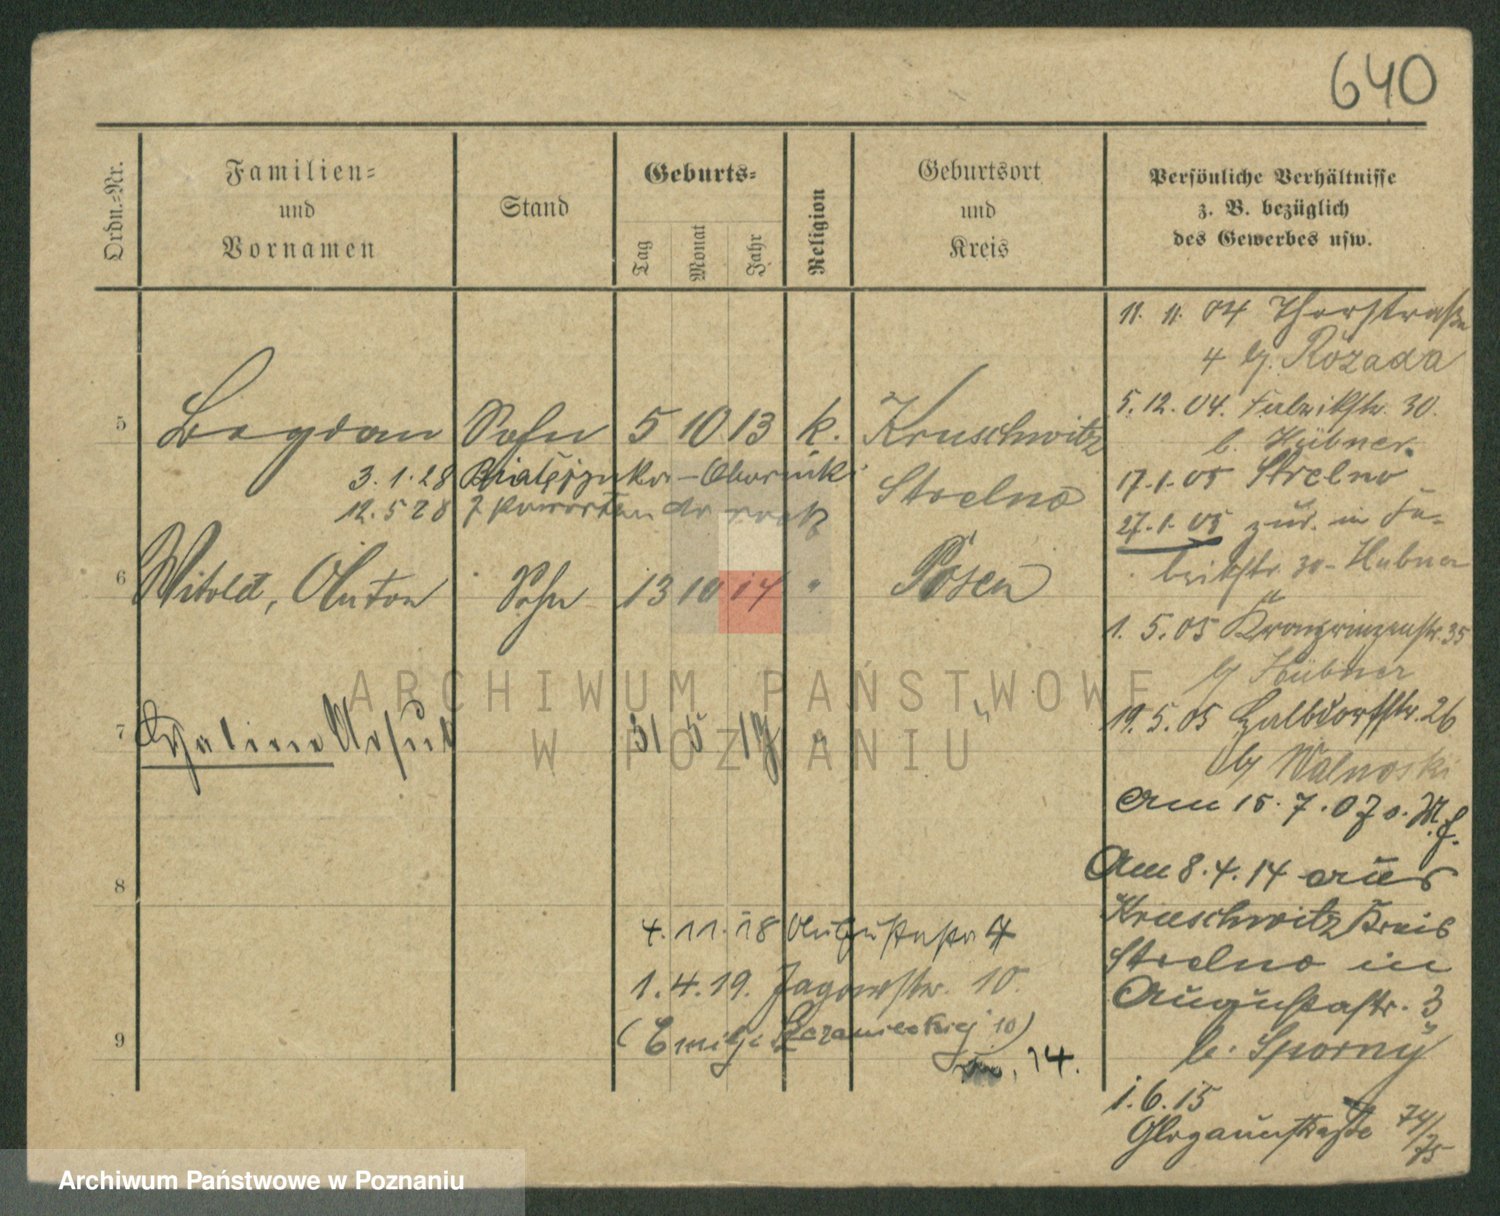 640
Ordn.-Nr.
Familien-
und
Vornamen
Stand
Geburts-
Tag
Monat
Jahr
Religion
Geburtsort
und
Kreis
Persönliche Verhältnisse
z. B. bezüglich
des Gewerbes usw.
5 Bogdan Sohn 5 10 13 k. Kruschwitz
Strelno
3.1.28
12.5 28 z powrotem do
6 Witold, Anton Sohn 13 10 14 " Posen
7 Halina Ursul 31 5 17 " "
8
4.11.18 Augustastr 4
1.4.19. Jagowstr. 10.
(Emilji Sczanieckiej 10)
14.
9
11. 11. 04 Thorstraße
4 by. Rozada
5.12.04. Fabrikstr. 30.
b. Hübner.
17.1.05 Strelno
27.1.05 zur. in Fa-
brikstr. 30 - Hubner
1. 5.05 Kronprinzenstr. 35
by Hübner
19.5.05 Halbdorfstr. 26
by Walnoski
Am 15.7.07 o. M. f.
Am 8.4.14 aus
Kruschwitz Kreis
Strelno in
Augustastr. 3
b. Sporny
1.6.15
Glogauerstraße 74/75
ARCHIWUM PAŃSTWOWE
W POZNANIU
Archiwum Państwowe w Poznaniu